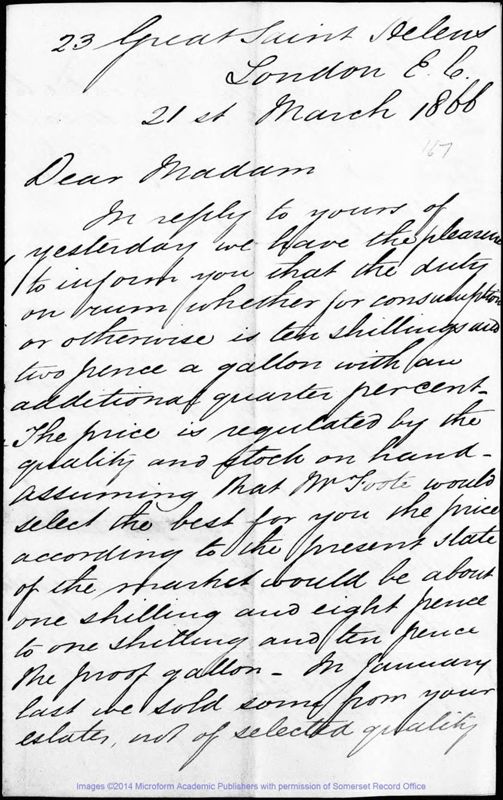 23 Great Saint Helens
London E.C.
21st March 1866
157
Dear Madam
In reply to yours of
yesterday we have the pleasure
to inform you that the duty
on rum whether for consumption
or otherwise is ten shillings and
two pence a gallon with an
additional quarter percent-
The price is regulated by the
quality and stock on hand-
assuming that Mr Foote would
select the best for you the price
according to the present state
of the market would be about
one shilling and eight pence
to one shilling and ten pence
the proof gallon - In January
last we sold some from your
estates, not of selected quality
Images ©2014 Microform Academic Publishers with permission of Somerset Record Office